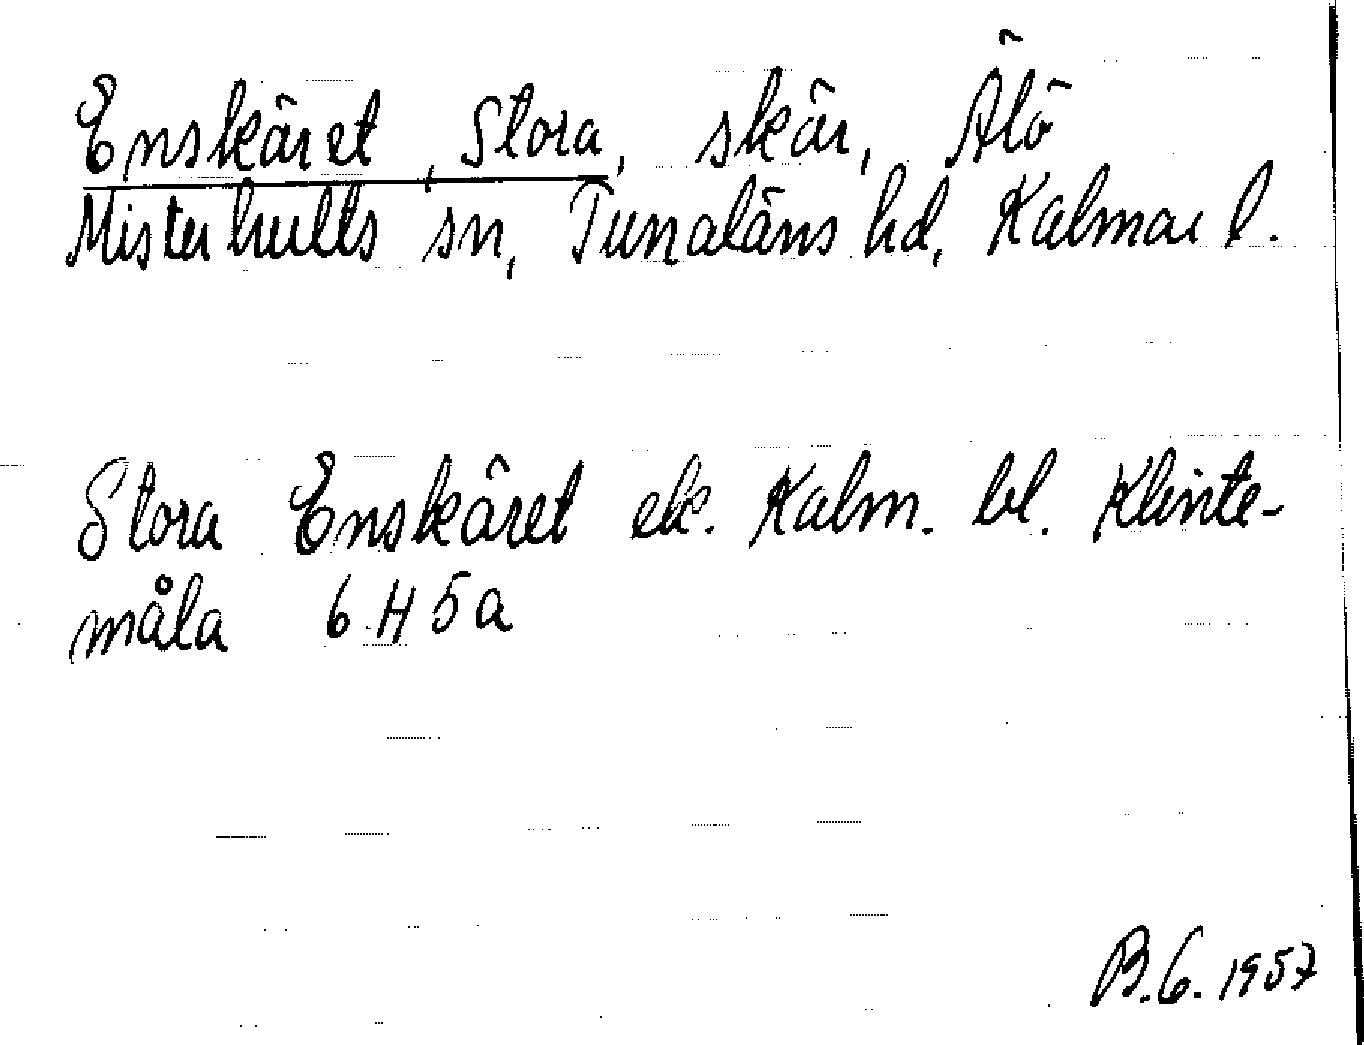 Enskäret, Stora, skär, Älö
Misterhults sn, Tunaläns hd, Kalmar l.
Stora Enskäret ek. Kalm. bl. Klinte-
måla 6 H 5a
B.G. 1957